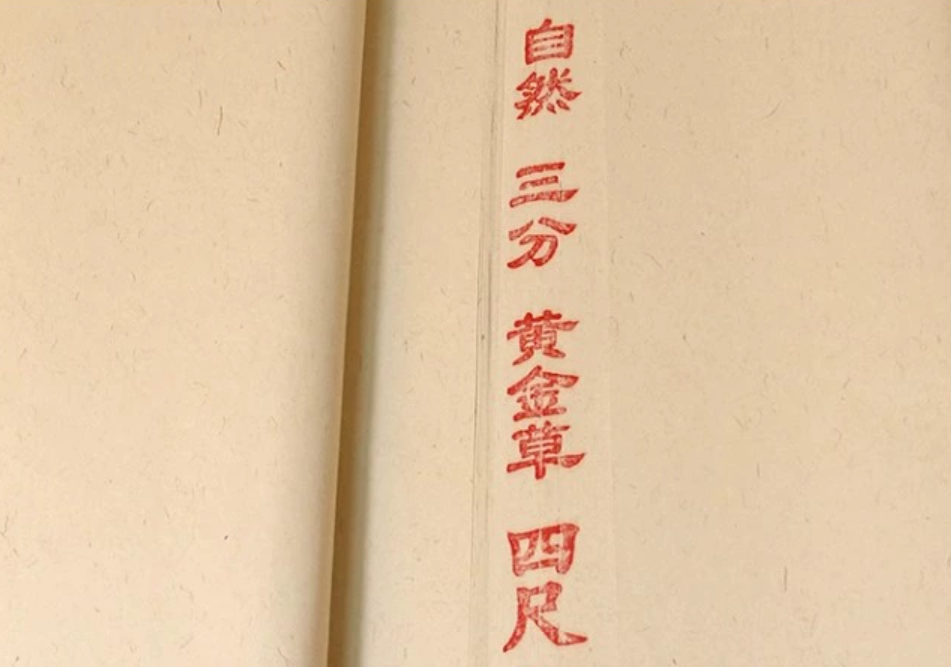 自然 三分 黄金草 四尺